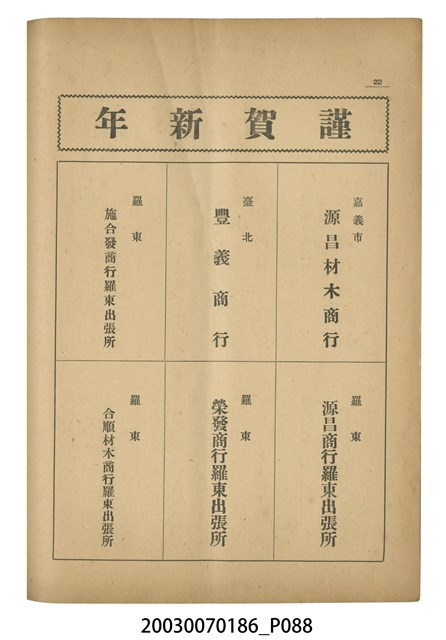 22
謹賀新年
嘉義市
源昌材木商行
臺北
豐義商行
羅東
施合發商行羅東出張所
羅東
源昌商行羅東出張所
羅東
榮發商行羅東出張所
羅東
合順材木商行羅東出張所
20030070186_P088